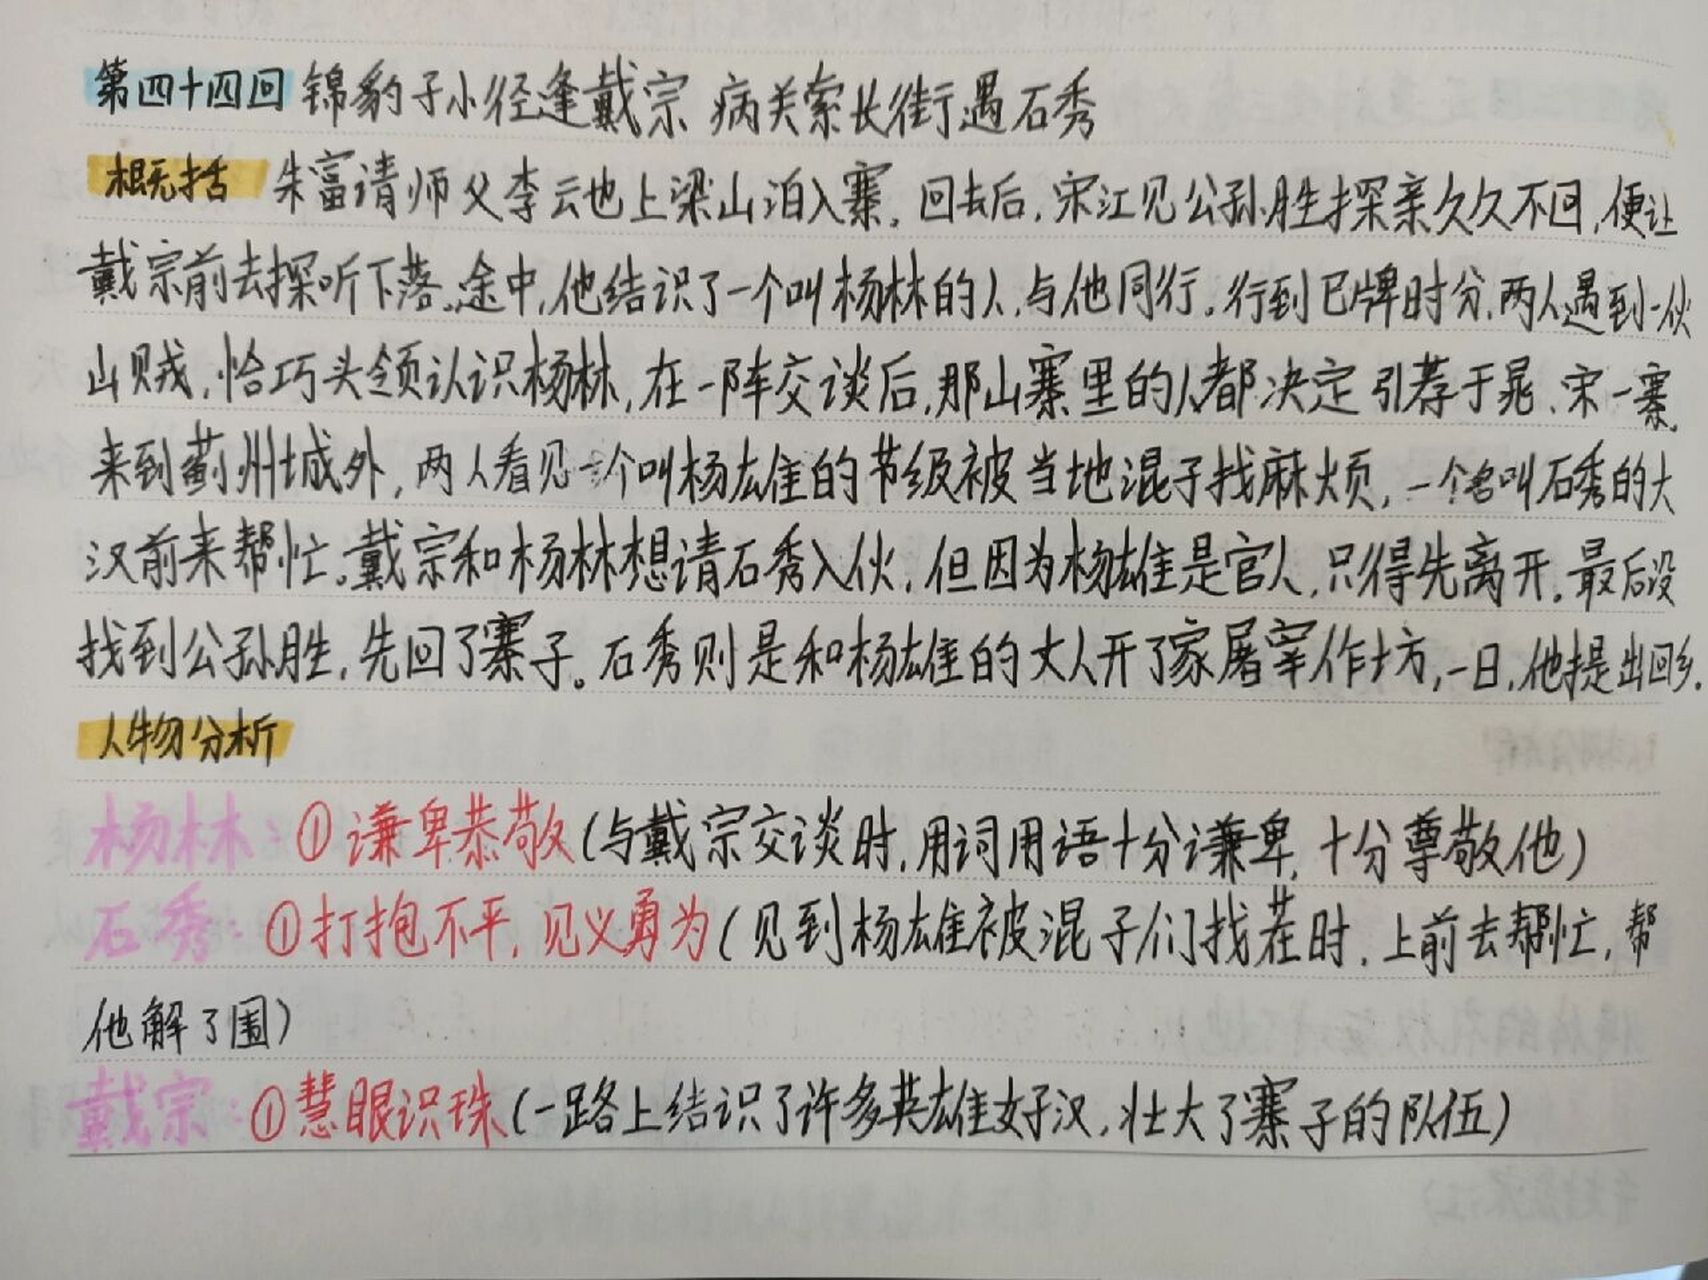 第四十四回 锦豹子小径逢戴宗 病关索长街遇石秀
概括 朱富请师父李云也上梁山泊入寨。回去后,宋江见公孙胜探亲久久不回,便让
戴宗前去探听下落。途中,他结识了一个叫杨林的人,与他同行。行到巳牌时分,两人遇到一伙
山贼,恰巧头领认识杨林,在一阵交谈后,那山寨里的人都决定引荐于晁、宋一寨。
来到蓟州城外,两人看见一个叫杨雄的节级被当地混子找麻烦,一个名叫石秀的大
汉前来帮忙。戴宗和杨林想请石秀入伙,但因为杨雄是官人,只得先离开。最后没
找到公孙胜,先回了寨子。石秀则是和杨雄的丈人开了家屠宰作坊,一日,他提出回乡.
人物分析
杨林:①谦卑恭敬(与戴宗交谈时,用词用语十分谦卑,十分尊敬他)
石秀:①打抱不平,见义勇为(见到杨雄被混子们找茬时,上前去帮忙,帮
他解了围)
戴宗:①慧眼识珠(一路上结识了许多英雄好汉,壮大了寨子的队伍)